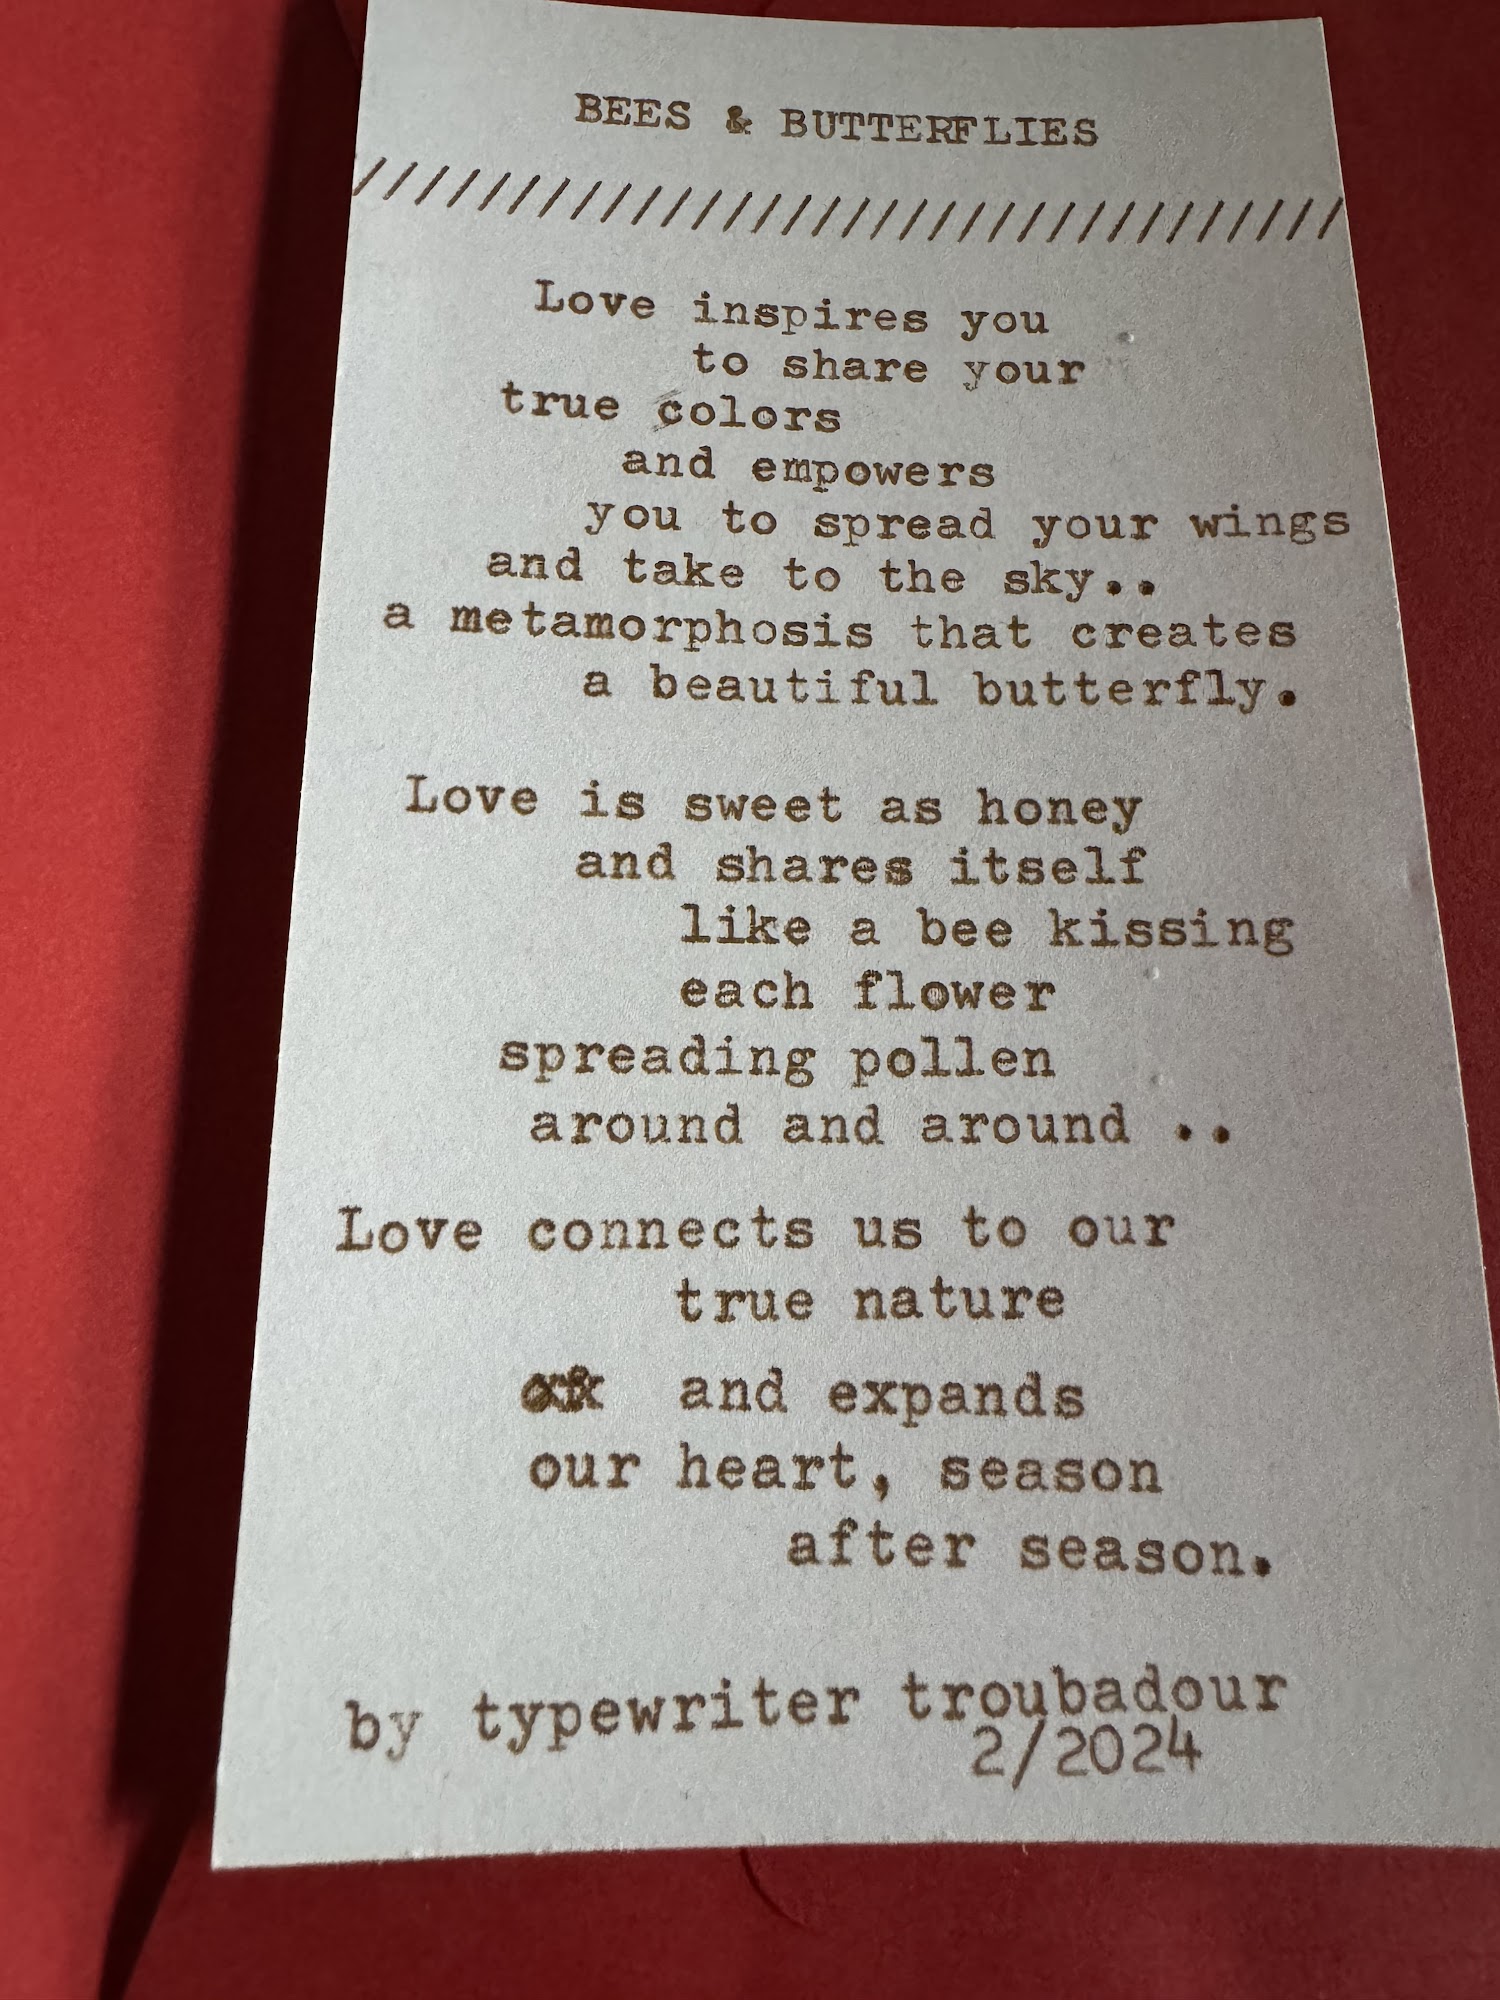 BEES & BUTTERFLIES
/////////////////////////////////
Love inspires you
to share your
true colors
and empowers
you to spread your wings
and take to the sky..
a metamorphosis that creates
a beautiful butterfly.
Love is sweet as honey
and shares itself
like a bee kissing
each flower
spreading pollen
around and around ..
Love connects us to our
true nature
and expands
our heart, season
after season.
by typewriter troubadour
2/2024